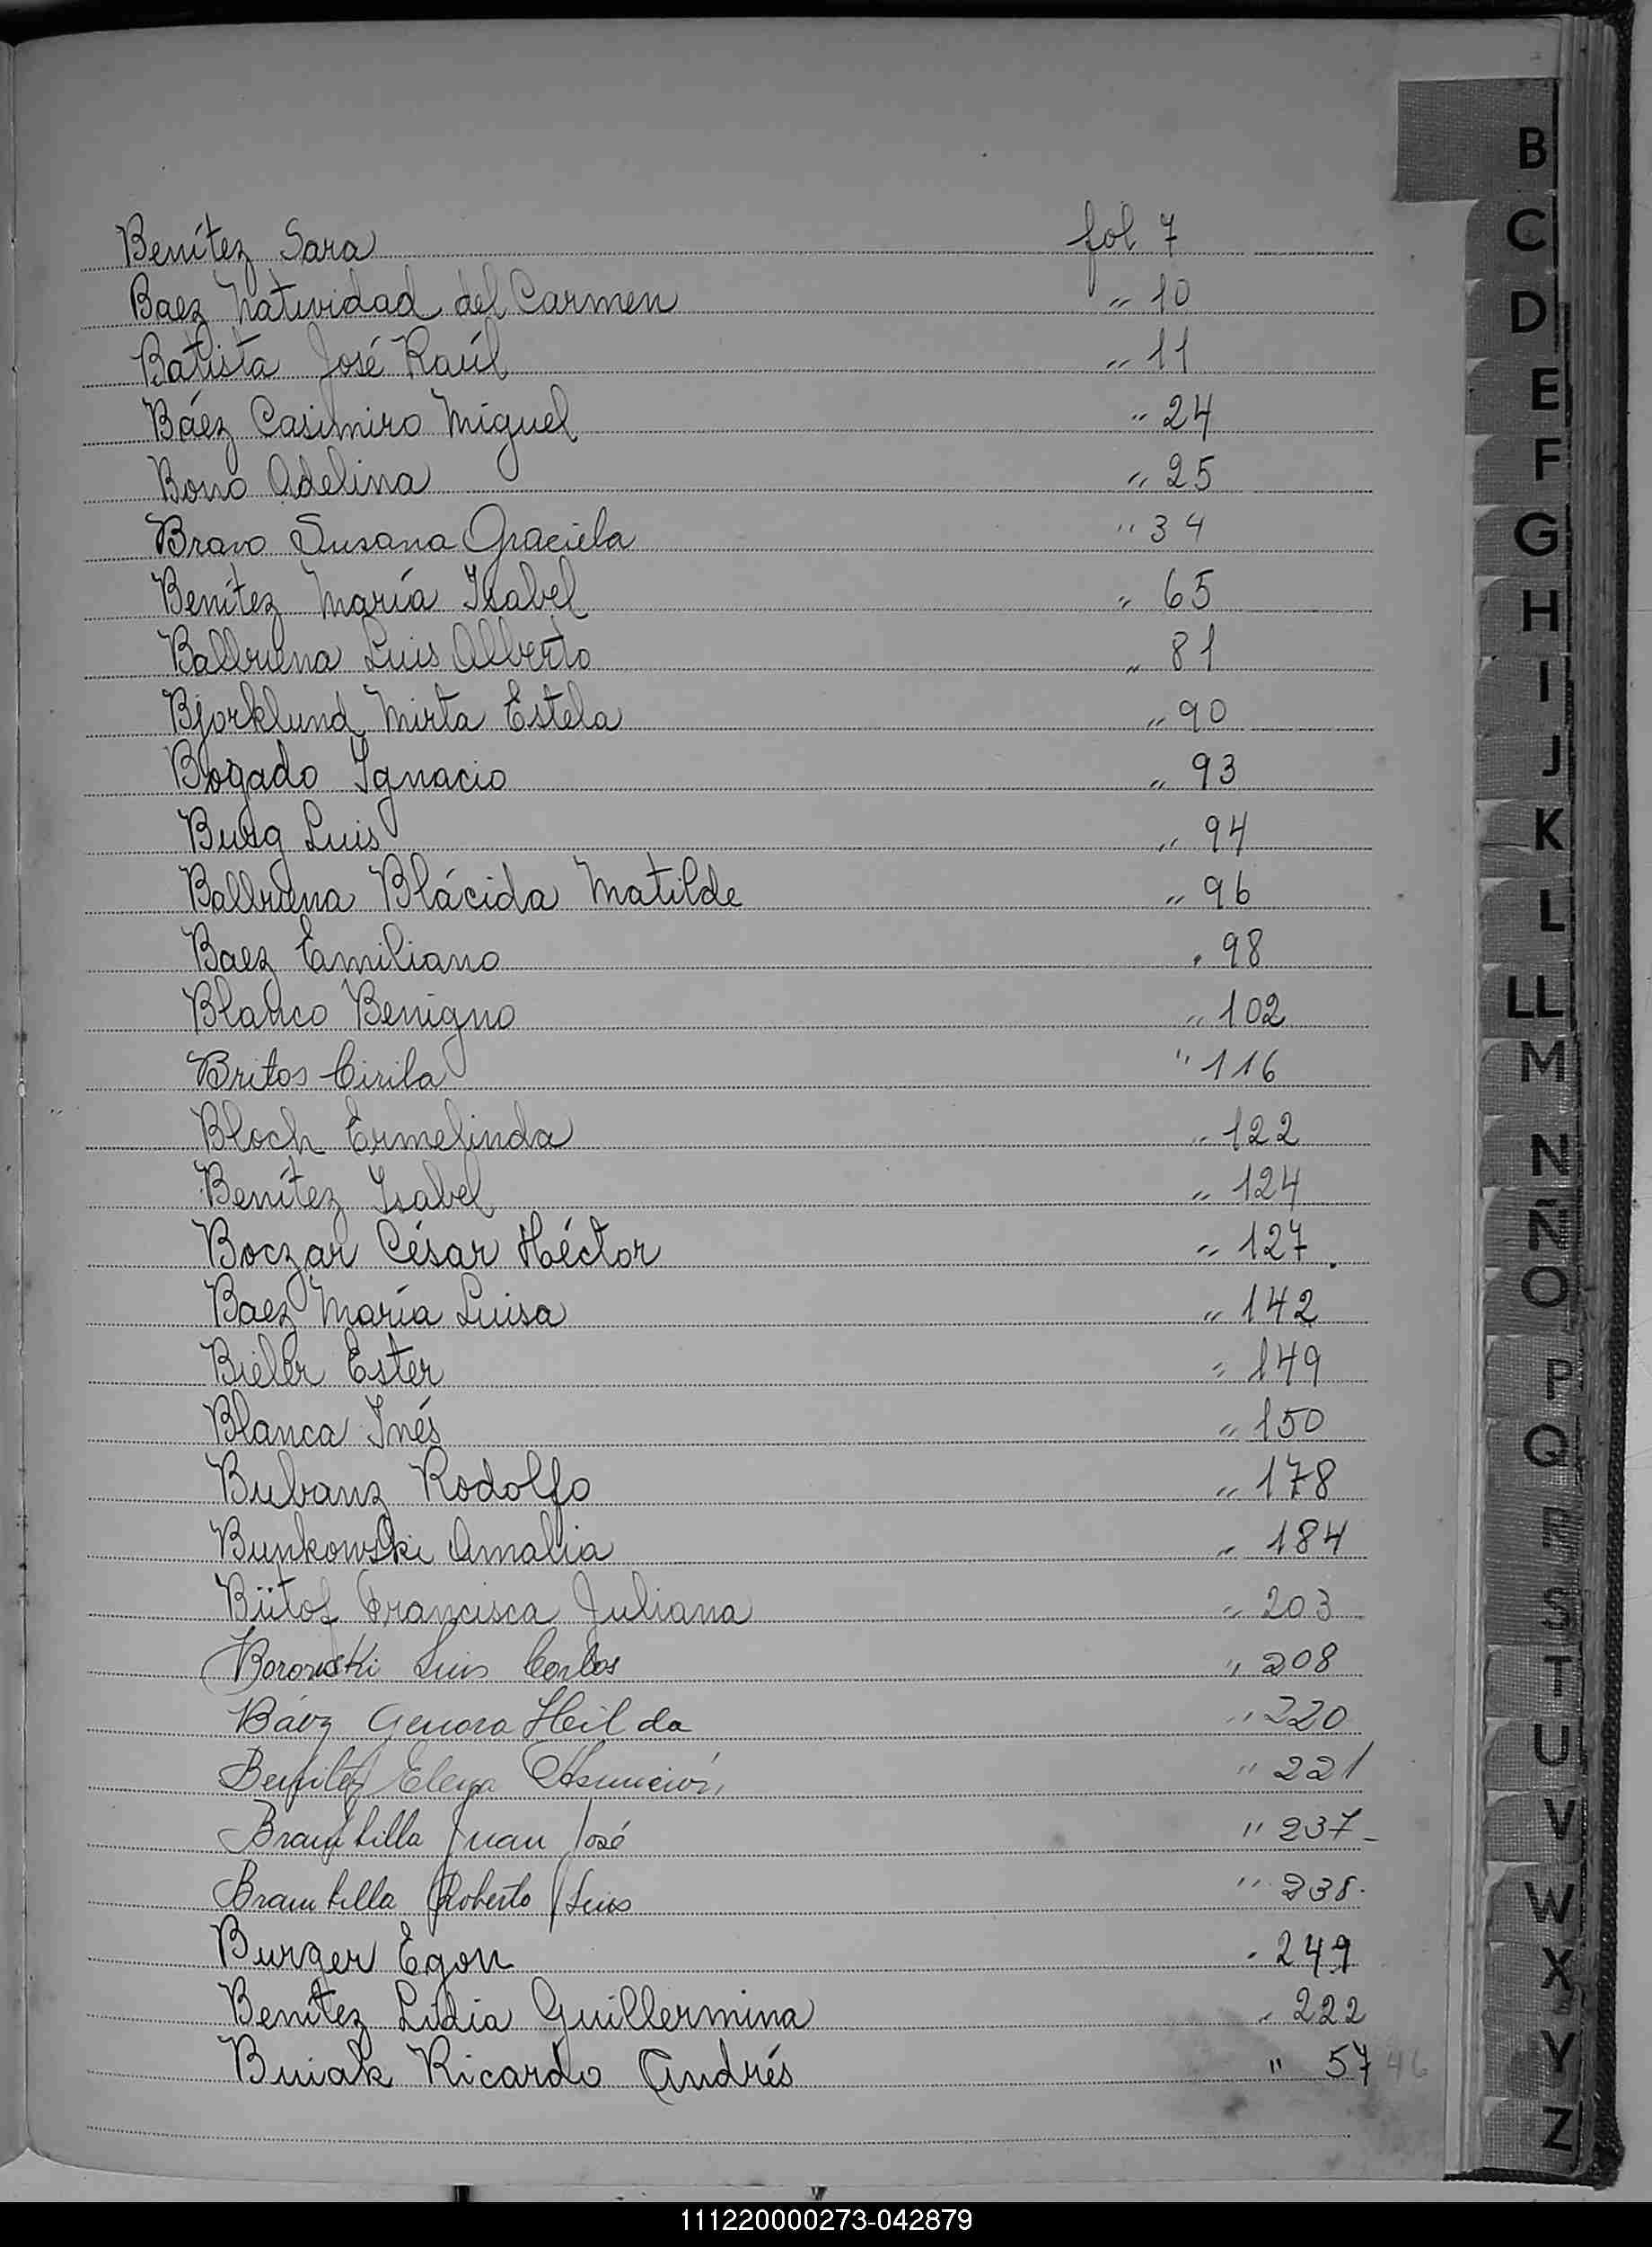 Benítez Sara fol 7
Baez Natividad del Carmen " 10
Batista José Raúl " 11
Báez Casimiro Miguel " 24
Bono Adelina " 25
Bravo Susana Graciela " 34
Benítez María Isabel " 65
Balbuena Luis Alberto " 81
Bjorklund Mirta Estela " 90
Bogado Ignacio " 93
Burg Luis " 94
Balbuena Blácida Matilde " 96
Baez Emiliano " 98
Blanco Benigno " 102
Britos Cirila " 116
Bloch Ermelinda " 122
Benítez Isabel " 124
Boczar César Héctor " 127.
Baez María Luisa " 142
Bieler Ester " 149
Blanca Inés " 150
Bubanz Rodolfo " 178
Bunkowski Amalia " 184
Bütof Francisca Juliana " 203
Borowski Luis Carlos " 208
Báez Genora Hilda " 220
Benítez Elena Asunción " 221
Brambilla Juan José " 237
Brambilla Roberto Luis " 238.
Burger Egon " 249
Benítez Lidia Guillermina " 222
Buiak Ricardo Andrés " 57 46
B
C
D
E
F
G
H
I
J
K
L
LL
M
N
Ñ
O
P
Q
R
S
T
U
V
W
X
Y
Z
111220000273-042879